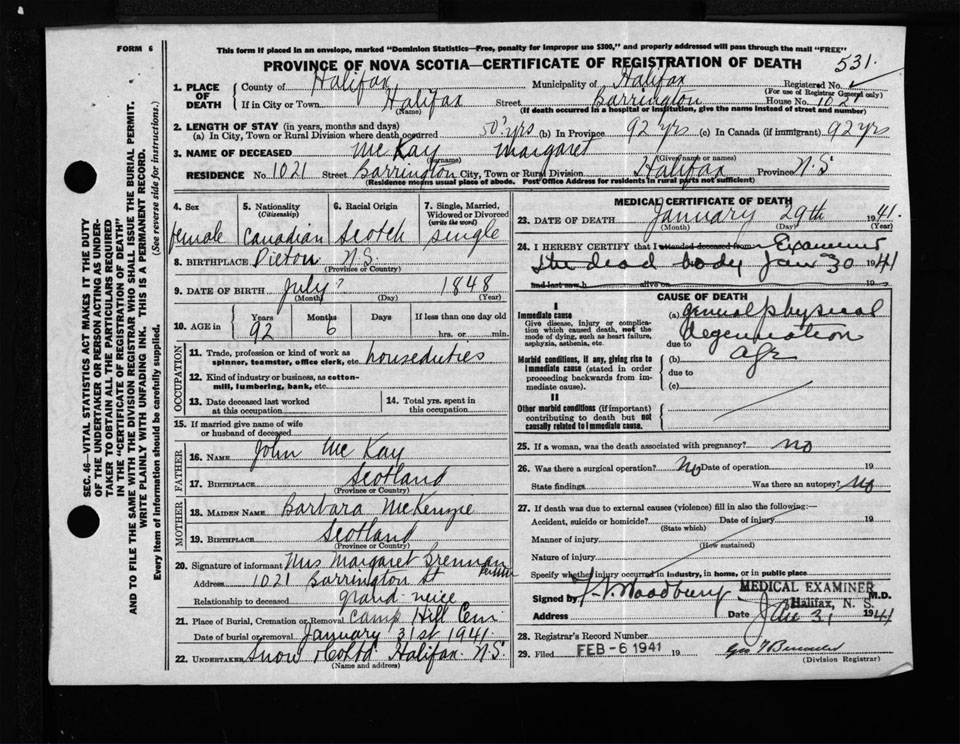 FORM 6
This form if placed in an envelope, marked "Dominion Statistics—Free, penalty for improper use $300," and properly addressed will pass through the mail "FREE"
PROVINCE OF NOVA SCOTIA—CERTIFICATE OF REGISTRATION OF DEATH 531.
1. PLACE OF DEATH
County of Halifax Municipality of Halifax Registered No.
(For use of Registrar General only)
If in City or Town Halifax Street Barrington House No. 1021
(Name) (If death occurred in a hospital or institution, give the name instead of street and number)
2. LENGTH OF STAY (in years, months and days)
(a) In City, Town or Rural Division where death occurred 50? yrs (b) In Province 92 yrs (c) In Canada (if immigrant) 92 yrs
3. NAME OF DECEASED McKay Margaret
(Surname) (Given name or names)
RESIDENCE No. 1021 Street Barrington City, Town or Rural Division Halifax Province N.S.
(Residence means usual place of abode. Post Office Address for residents in rural parts not sufficient)
4. Sex 5. Nationality (Citizenship) 6. Racial Origin 7. Single, Married, Widowed or Divorced (write the word)
female Canadian Scotch single
8. BIRTHPLACE Pictou N.S.
(Province or Country)
9. DATE OF BIRTH July ? 1848
(Month) (Day) (Year)
10. AGE in Years Months Days If less than one day old
92 6 hrs. or min.
OCCUPATION
11. Trade, profession or kind of work as spinner, teamster, office clerk, etc. houseduties
12. Kind of industry or business, as cotton-mill, lumbering, bank, etc.
13. Date deceased last worked at this occupation
14. Total yrs. spent in this occupation
15. If married give name of wife or husband of deceased
FATHER
16. NAME John McKay
17. BIRTHPLACE Scotland
(Province or Country)
MOTHER
18. MAIDEN NAME Barbara McKenzie
19. BIRTHPLACE Scotland
(Province or Country)
20. Signature of informant Mrs Margaret Brennan
Address 1021 Barrington St
Relationship to deceased grand-neice
21. Place of Burial, Cremation or Removal Camp Hill Cem
Date of burial or removal January 31st 1941.
22. UNDERTAKER Snow & Co Ltd Halifax N.S.
(Name and address)
MEDICAL CERTIFICATE OF DEATH
23. DATE OF DEATH January 29th 1941.
(Month) (Day) (Year)
24. I HEREBY CERTIFY that I attended deceased from Examined
the dead body Jan 30 1941
and last saw h alive on 19
CAUSE OF DEATH
I
Immediate cause
Give disease, injury or complication which caused death, not the mode of dying, such as heart failure, asphyxia, asthenia, etc.
(a) general physical
degeneration
due to
Morbid conditions, if any, giving rise to immediate cause (stated in order proceeding backwards from immediate cause).
(b) age
due to
(c)
II
Other morbid conditions (if important) contributing to death but not causally related to immediate cause.
25. If a woman, was the death associated with pregnancy? no
26. Was there a surgical operation? No Date of operation 19
State findings Was there an autopsy? No
27. If death was due to external causes (violence) fill in also the following:—
Accident, suicide or homicide? Date of injury 19
(State which)
Manner of injury
(How sustained)
Nature of injury
Specify whether injury occurred in industry, in home, or in public place
Signed by Woodbury M.D.
MEDICAL EXAMINER
Halifax, N. S.
Address Date Jan 31 1941
28. Registrar's Record Number
29. Filed FEB - 6 1941 19
(Division Registrar)
SEC. 46—VITAL STATISTICS ACT MAKES IT THE DUTY
OF THE UNDERTAKER OR PERSON ACTING AS UNDER-
TAKER TO OBTAIN ALL THE PARTICULARS REQUIRED
IN THE "CERTIFICATE OF REGISTRATION OF DEATH"
AND TO FILE THE SAME WITH THE DIVISION REGISTRAR WHO SHALL ISSUE THE BURIAL PERMIT.
WRITE PLAINLY WITH UNFADING INK. THIS IS A PERMANENT RECORD.
Every item of Information should be carefully supplied. (See reverse side for instructions.)